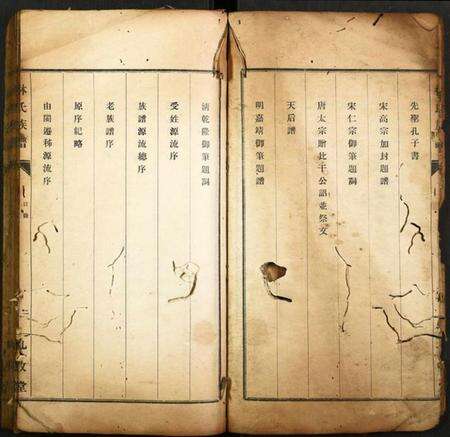 先聖孔子書
宋高宗加封題譜
宋仁宗御筆題詞
唐太宗贈比干公詔並祭文
天后譜
明嘉靖御筆題譜
清乾隆御筆題詞
受姓源流序
族譜源流總序
老族譜序
原序紀略
由閩遷秭源流序
林氏族譜